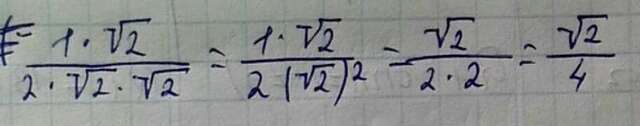 = \frac{1 \cdot \sqrt{2}}{2 \cdot \sqrt{2} \cdot \sqrt{2}} = \frac{1 \cdot \sqrt{2}}{2 (\sqrt{2})^2} = \frac{\sqrt{2}}{2 \cdot 2} = \frac{\sqrt{2}}{4}